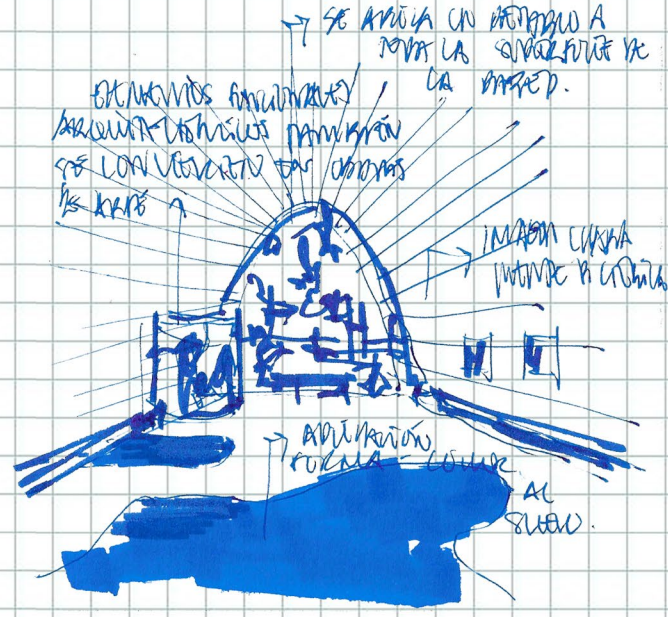 SE APLICA UN DETALLE A
TODA LA SUPERFICIE DE
LA PARED.
ELEMENTOS FUNCIONALES
ARQUITECTÓNICOS TAMBIÉN
SE CONVIERTEN EN OBRAS
DE ARTE
IMAGEN
APLICACIÓN
FORMA - COLOR
AL
SUELO.